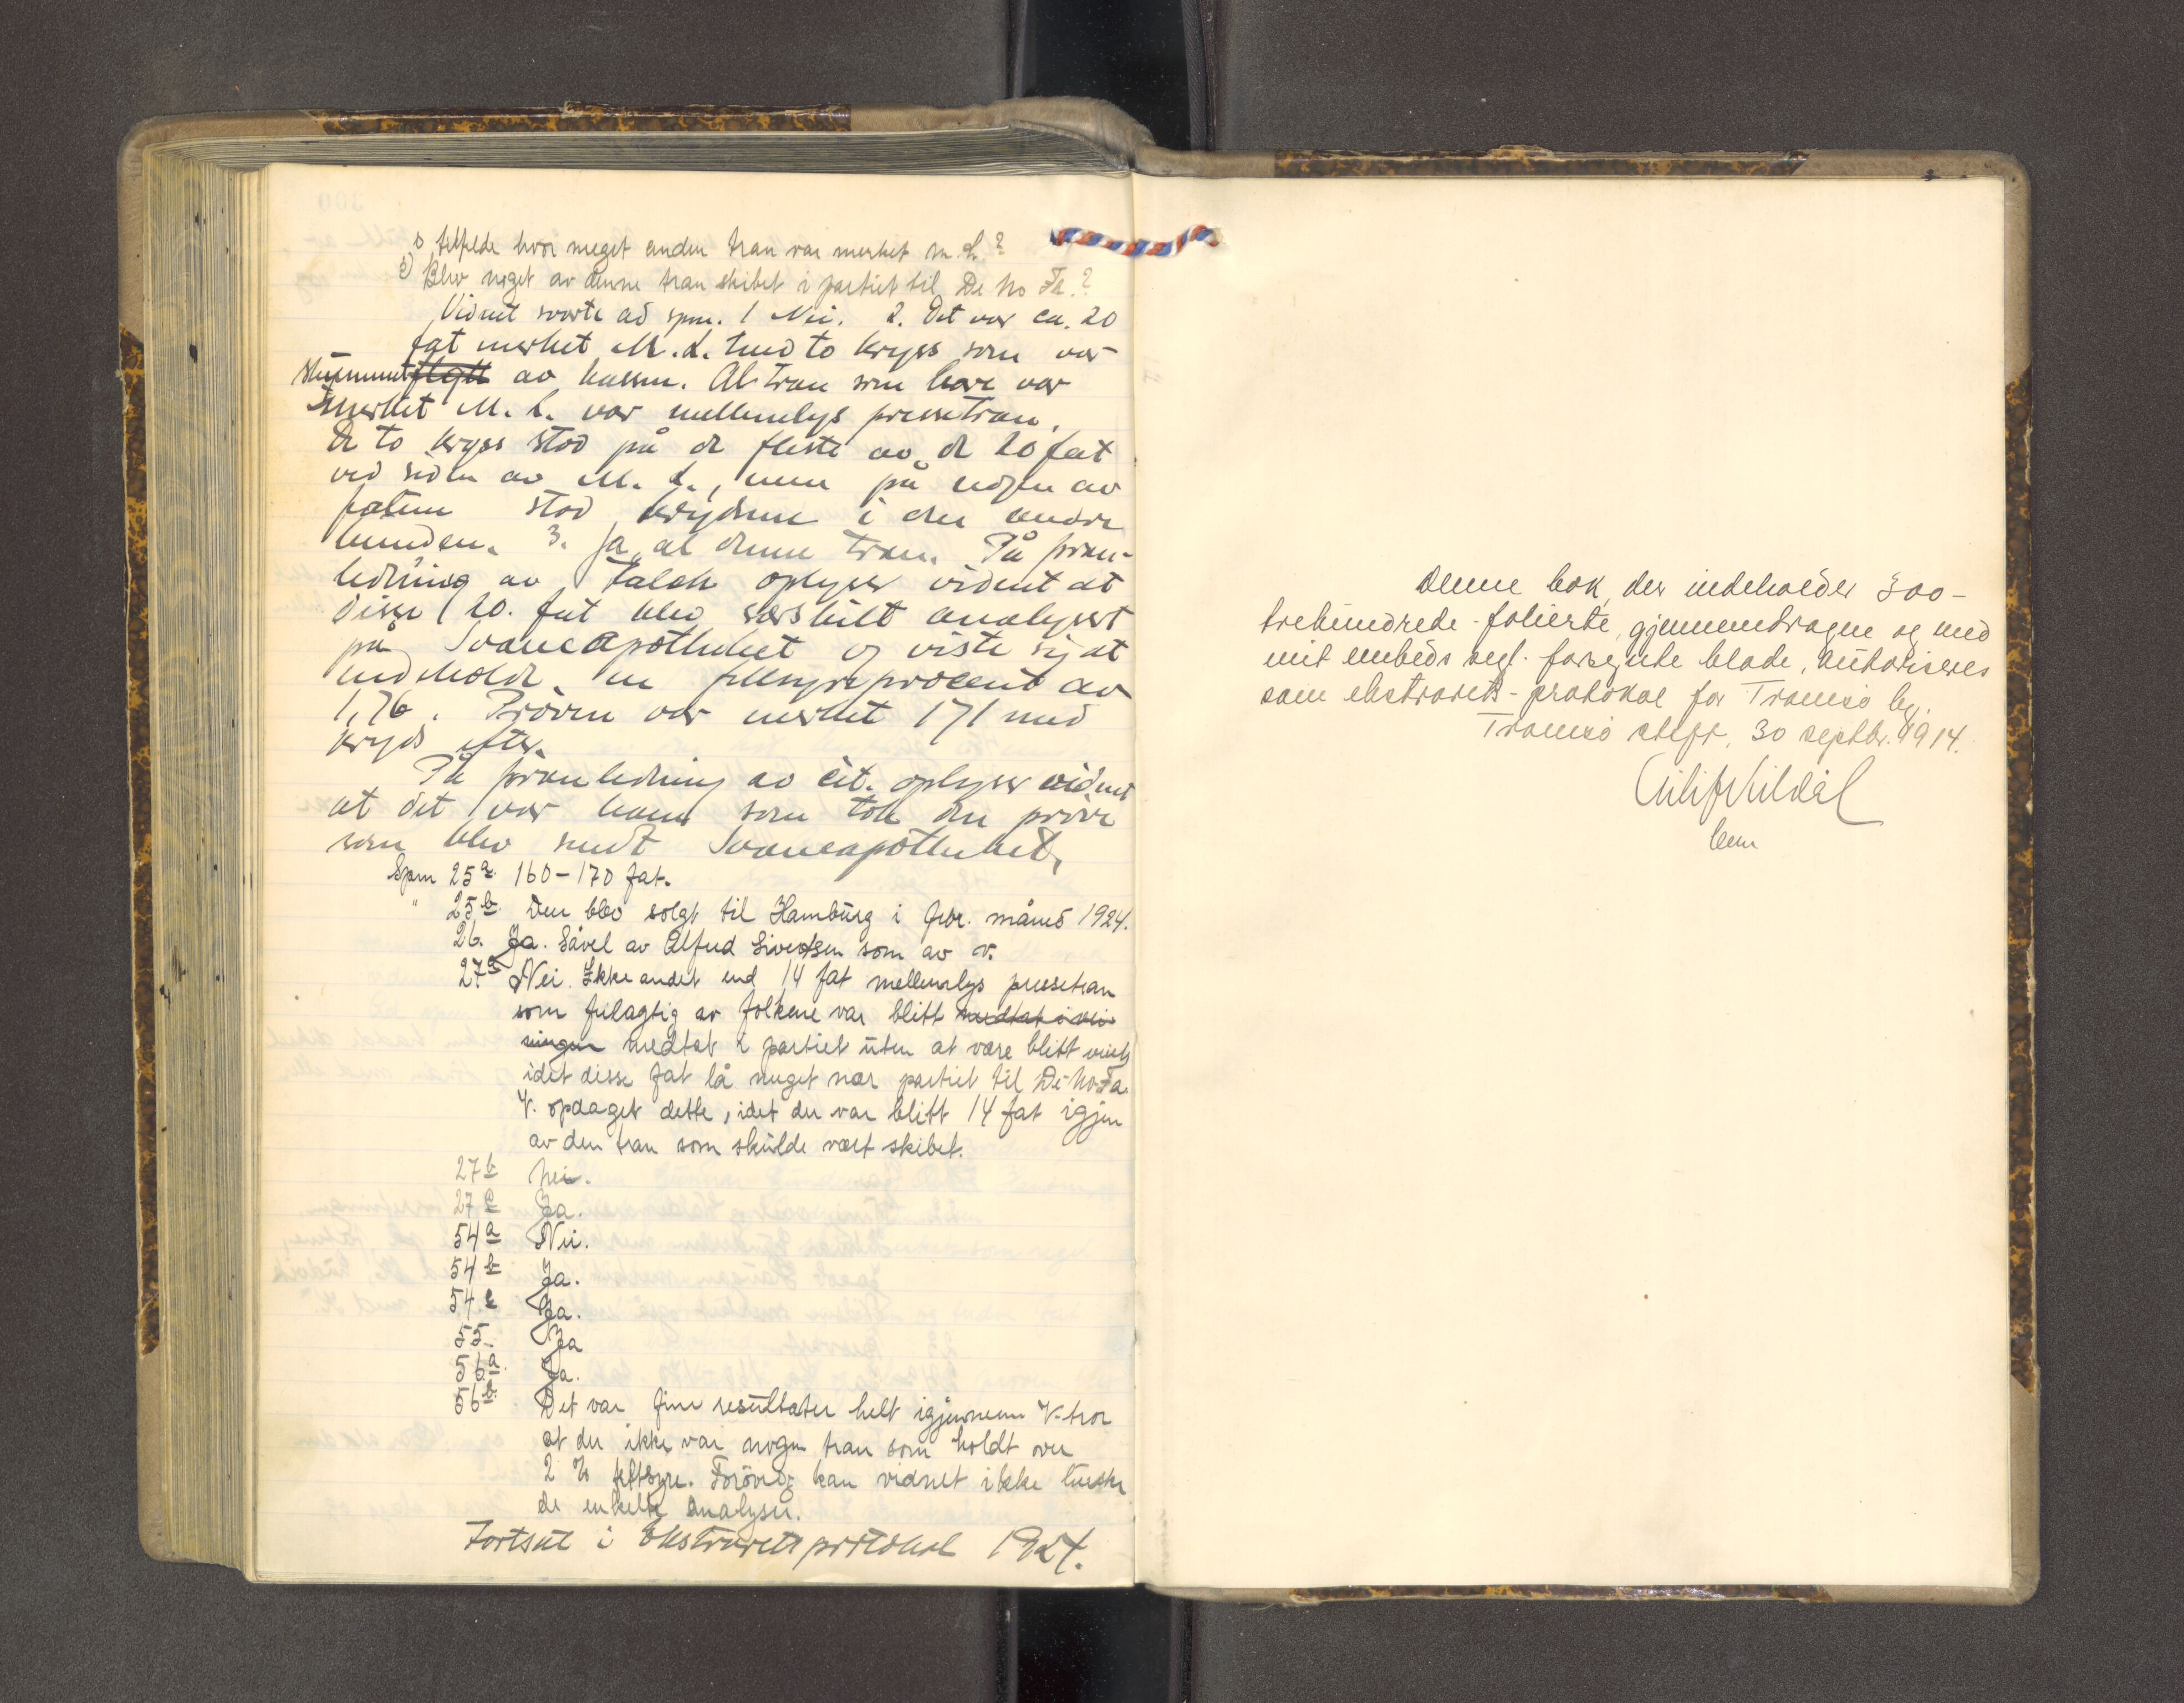 s tilfelde hvor meget anden tran var merket M.L.?
c) Blev noget av denne tran skibet i partiet til De No Fa.?
Vidnet svarte ad spm. 1 Nei. 2. Det var ca. 20
fat merket M.L. med to kryss som var
av massen. Al tran som bare var
merket M.L. var mellemlys pressetran.
De to kryss stod på de fleste av de 20 fat
ved siden av M.L., men på nogen av
fatene stod krydsene i den andre
bunden. 3. Ja, al denne tran. På foran-
ledning av Falch oplyser vidnet at
disse 20. fat blev særskilt analysert
på Svaneapotheket og viste sig at
indeholde en fettsyreprocent av
1,76. Prøven var merket 171 med
kryds efter.
På foranledning av cit. oplyser vidnet
at det var ham som tok den prøve
som blev sendt Svaneapotheket,
Spm 25a. 160-170 fat.
" 25b. Den blev solgt til Hamburg i febr. måned 1924.
26. Ja. Såvel av Alfred Sivertsen som av v.
27a Nei. Ikke andet end 14 fat mellemlys pressetran
som feilagtig av folkene var blitt medtat i vei-
ningen medtat i partiet uten at være blitt veiet
idet disse fat lå meget nær partiet til De-No-Fa.
V. opdaget dette, idet der var blitt 14 fat igjen
av den tran som skulde vært skibet.
27b Nei.
27c Ja.
54a Nei.
54b Ja.
54c Ja.
55. Ja
56a. Ja.
56b. Det var fine resultater helt igjennem V. tror
at der ikke var nogen tran som holdt over
2 % fettsyre. Forøvrig kan vidnet ikke huske
de enkelte analyser.
Fortsat i Ekstraretsprotokol 1924.
Denne bok, der indeholder 300-
trehundrede-folierte, gjennemdragne og med
mit embeds segl. forsynte blade, autoriseres
som ekstrarets-protokol for Tromsø by.
Tromsø stiftr, 30 septbr. 1914.